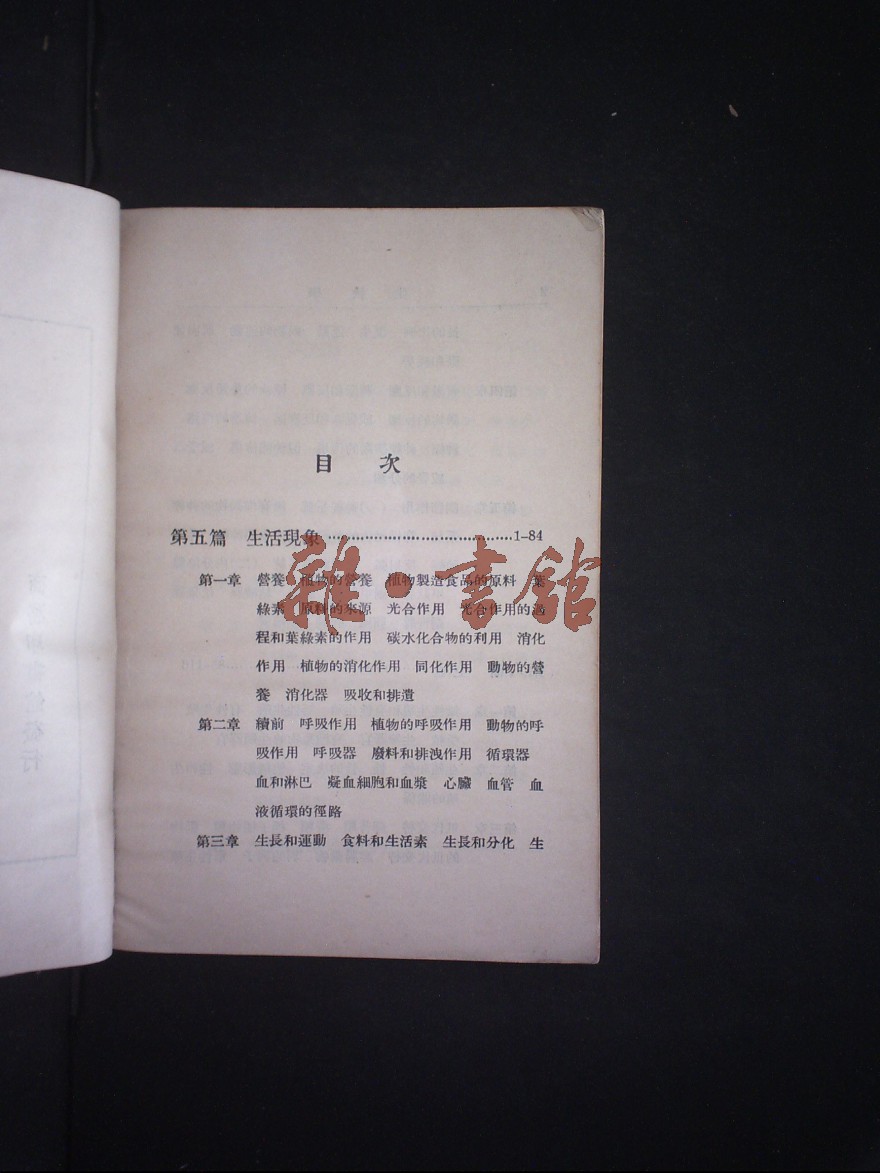 目 次
第五篇 生活現象········································1-84
第一章 營養 植物的營養 植物製造食品的原料 葉
綠素 原料的來源 光合作用 光合作用的過
程和葉綠素的作用 碳水化合物的利用 消化
作用 植物的消化作用 同化作用 動物的營
養 消化器 吸收和排遺
第二章 續前 呼吸作用 植物的呼吸作用 動物的呼
吸作用 呼吸器 廢料和排洩作用 循環器
血和淋巴 凝血細胞和血漿 心臟 血管 血
液循環的徑路
第三章 生長和運動 食料和生活素 生長和分化 生
雜·書館